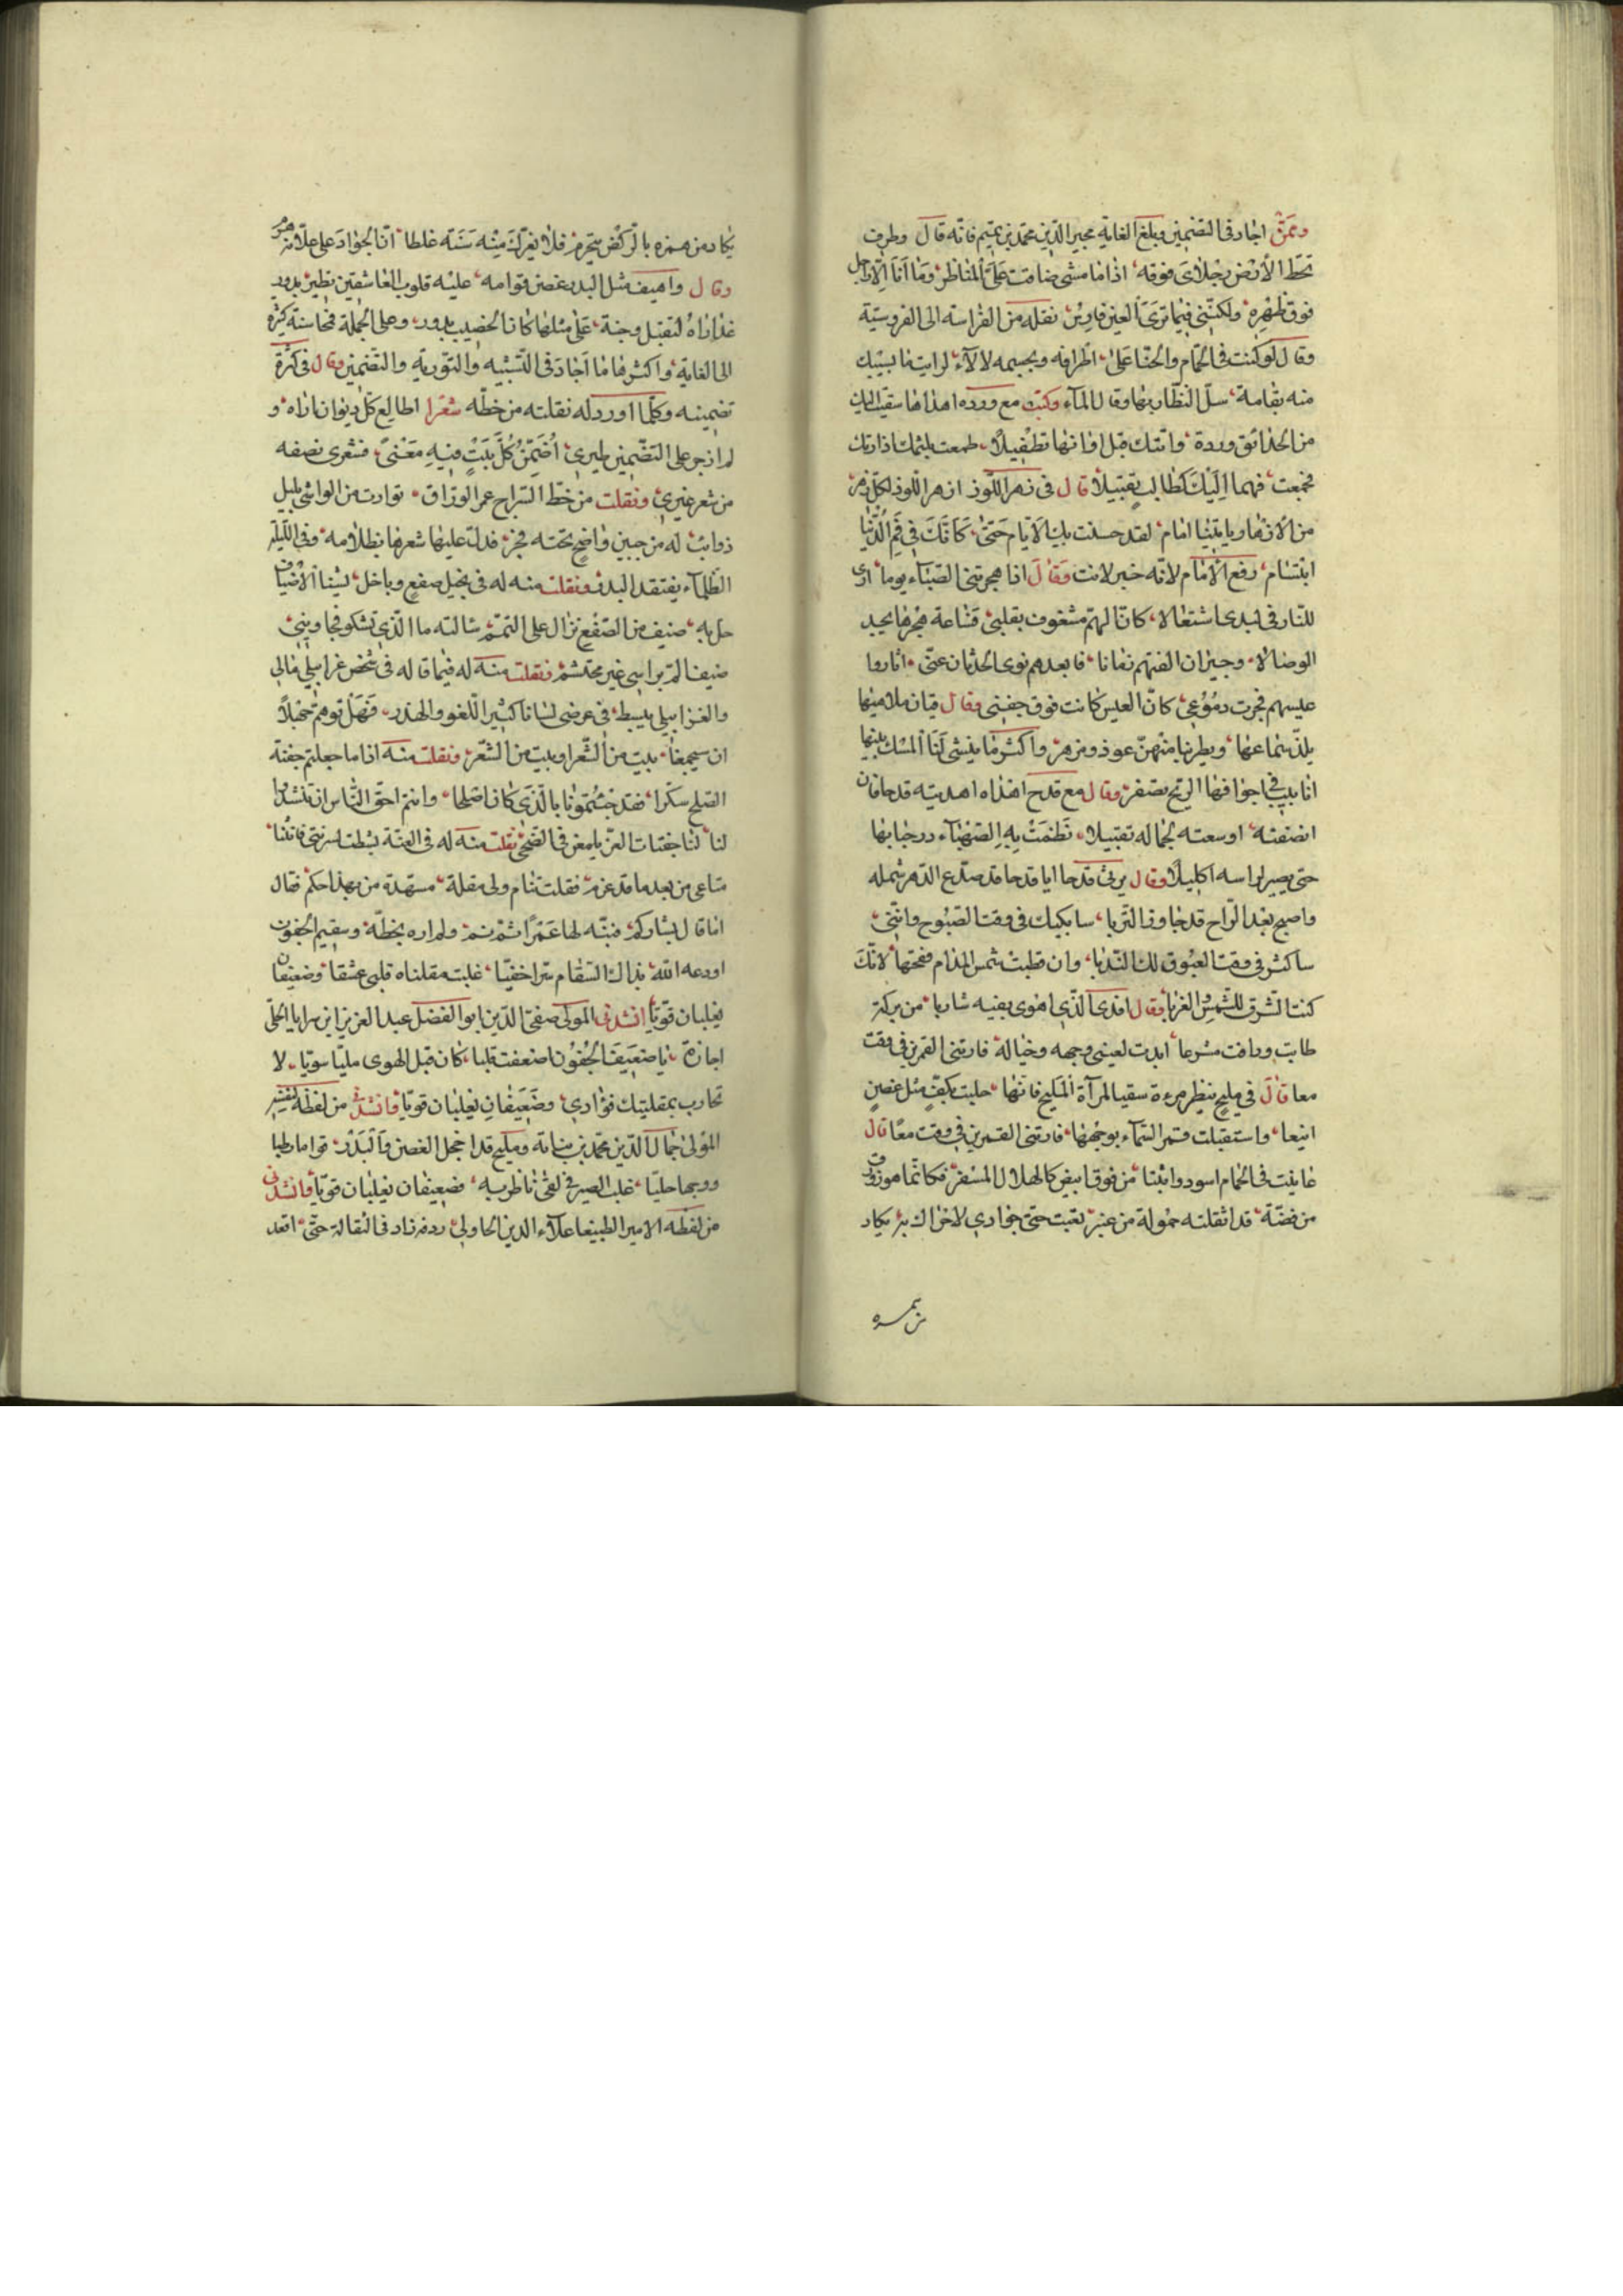 وممّن اجاد فى التضمين وبلغ الغاية مجير الدّين محمّد بن تميم فانّه قال وطرف
تخطّ الأرض رجلاى فوقه اذا ما مشى ضاقت علىّ المناظر وما انا الّا راجل
فوق ظهره ولكنّنى فيما ترى العين فارس نقله من الفراسة الى الفروسيّة
وقال لو كنت فى الحمّام والحنّا على اطرافه وبجسمه لالآء لرايت ما يسبيك
منه بقامة سال النظار بها وقال المآء وكتب مع وردة اهداها سيقت اليك
من الحدائق وردة واتتك قبل اوانها تطفيلًا طمعت بلثمك اذ راتك
فجمعت فمها اليك كطالب تقبيلًا قال فى زهر اللّوز ازهر اللّوز لكلّ زهر
من الازهار ياتينا امام لقد حسنت بك الايام حتىّ كانّك فى فم الدّنيا
ابتسام رفع الامام لانّه خبر لانت وقال اذا هجرتنى الصّهبآء يوما ارى
للنّار فى كبدى اشتعالا كانّ الهمّ مشغوف بقلبى فساعة هجرها يجد
الوصالا وجيران الفتهم زمانا فابعدهم نوى الحدثان عنّى اثاروا
عيسهم فجرت دموعى كانّ العيس كانت فوق جفنى وقال قيان ملاهيها
يلذّ سماعها ويطربنا منهنّ عود ومزهر واكثر ما ينشى لنا المسك بينها
انابيب فى اجوافها الرّيح تصفر وقال مع قدح اهداه اهديته قدحا فان
انصفته اوسعته بجماله تقبيلا نظمت به الصّهبآء درّ حبابها
حتى يصير لراسه اكليلًا وقال يرثى قدحا ايا قدحا قد صدّع الدّهر شمله
واصبح بعد الرّاح قد جاور التّربا سابكيك فى وقت الصّبوح وانّنى
ساكثر فى وقت الغبوق لك النّدبا وان قطبت شمس المدام فحقّها لانّك
كنت الشّرق للشّمس والغربا وقال افدى الّذى اهوى بفيه شاربا من بركة
طابت وراقت مشرعا ابدت لعينى وجهه وخياله فارتنى القمرين فى وقت
معا قال فى مليح ينظر مرءة سقيا لمرآة المليح فانّها حليت بكفّ مثل غصن
اينعا واستقبلت قمر السّمآء بوجهها فارتنى القمرين فى وقت معًا قال
عاينت فى الحمام اسود واثبا من فوق ابيض كالهلال المسفر فكانّما هو زورق
من فضّة قد اثقلته حمولة من عنبر تعبت حتى جوادى لا حراك به يكاد
من همزه
يكاد من همزه بالرّكض ينخرم فلا يغرّك منه سنّه غلطا انّ الجواد على علّاته هرم
وقال واهيف مثل البدر غصن قوامه عليه قلوب العاشقين تطير يدور
عذاراه لتقبيل وجنة على مثلها كان الخصيب يدور وعلى الجملة فمحاسنه كثيرة
الى الغاية واكثرها ما اجاد فى التّشبيه والتّورية والتّضمين وقال فى كثرة
تضمينه وكلّما اورد له نقلته من خطّه شعرا اطالع كلّ ديوان اراه و
لم ازجر على التضمين طيرى اضمّن كلّ بيت فيه معنىً فشعرى نصفه
من شعر غيرى ونقلت من خطّ السّراج عمر الورّاق توارت من الواشى بليل
ذوائب له من جبين واضح تحته فجر فدلّ عليها شعرها بظلامه وفى اللّيلة
الظّلمآء يفتقد البدر ونقلت منه له فى بخيل صفع وباخل يشنا الاضياف
حلّ به ضيف من الصّفع نزّال على القمم سالته ما الّذى تشكو فجاوبنى
ضيف المّ براسى غير محتشم ونقلت منه له فيما قاله فى شخص غرابيلى مالى
وللغرابيلى يبسط فى عرضى لسانا كثير اللّغو والهذر فهل توهّم جهلًا
ان سيجمعنا بيت من الشّعر او بيت من الشّعر ونقلت منه اذا ما جعلتم جفنة
الصّلح سكّرا فقد جئتمونا بالّذى كان اصلحا وانتم احقّ النّاس ان تنشدوا
لنا لنا جفنات الغرّ يلمعن فى الضّحى نقلت منه له فى العنّة بسّطت لسرّتى فانثنا
متاعى من بعد ما قد عزم فقلت تنام ولى مقلة مسهّدة من بهذا حكم فقال
اما قال بشّاركم فنبّه لها عمرًا ثمّ نم ولم اره بخطّه وسقيم الجفون
اودعه الله بذاك السّقام سرّا خفيّا غلبت مقلتاه قلبى عشقا وضعيفان
يغلبان قويّا انشدنى المولى صفىّ الدّين ابو الفضل عبد العزيز ابن سرايا الحلّى
اجازة يا ضعيف الجفون اضعفت قلبا كان قبل الهوى مليّا سويّا لا
تحارب بمقلتيك فؤادى وضعيفان يغلبان قويّا وانشدنى من لفظه لنفسه
المولى جمال الدّين محمّد بن نباتة ومليح قد اخجل الغصن والبدر قواما رطبا
ووجها جليّا غلب الصبر فى لقى ناظريه وضعيفان يغلبان قويّا وانشدنى
من لفظه الامير الطنبغا علآء الدين الجاولى ردفه زاد فى الثقالة حتّى اقعد